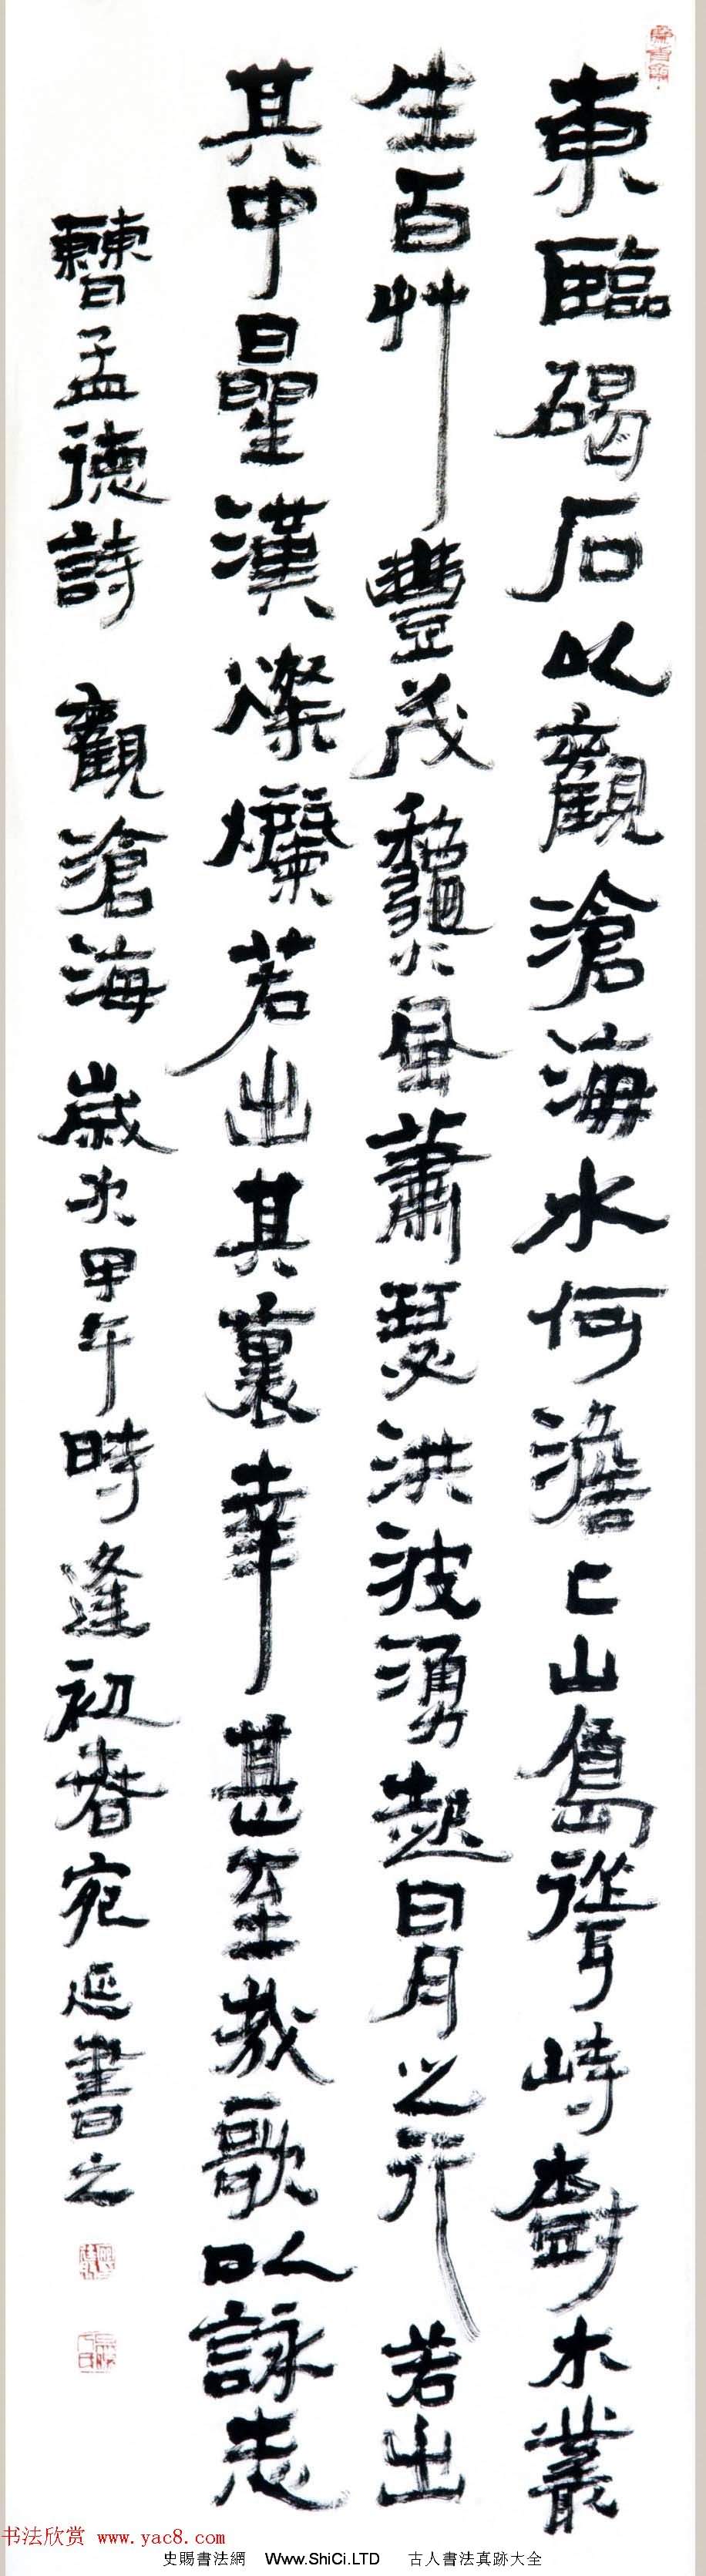 東臨碣石以觀滄海水何澹〻山島聳峙樹木叢
生百艸豐茂龝風蕭瑟洪波湧起日月之行若出
其中曐漢燦爛若出其裏幸甚至哉歌以詠志
曹孟德詩 觀滄海 歲次甲午時逢初春宛延書之
书法欣赏 www.yac8.com
史賜書法網 Www.ShiCi.LTD 古人書法真跡大全